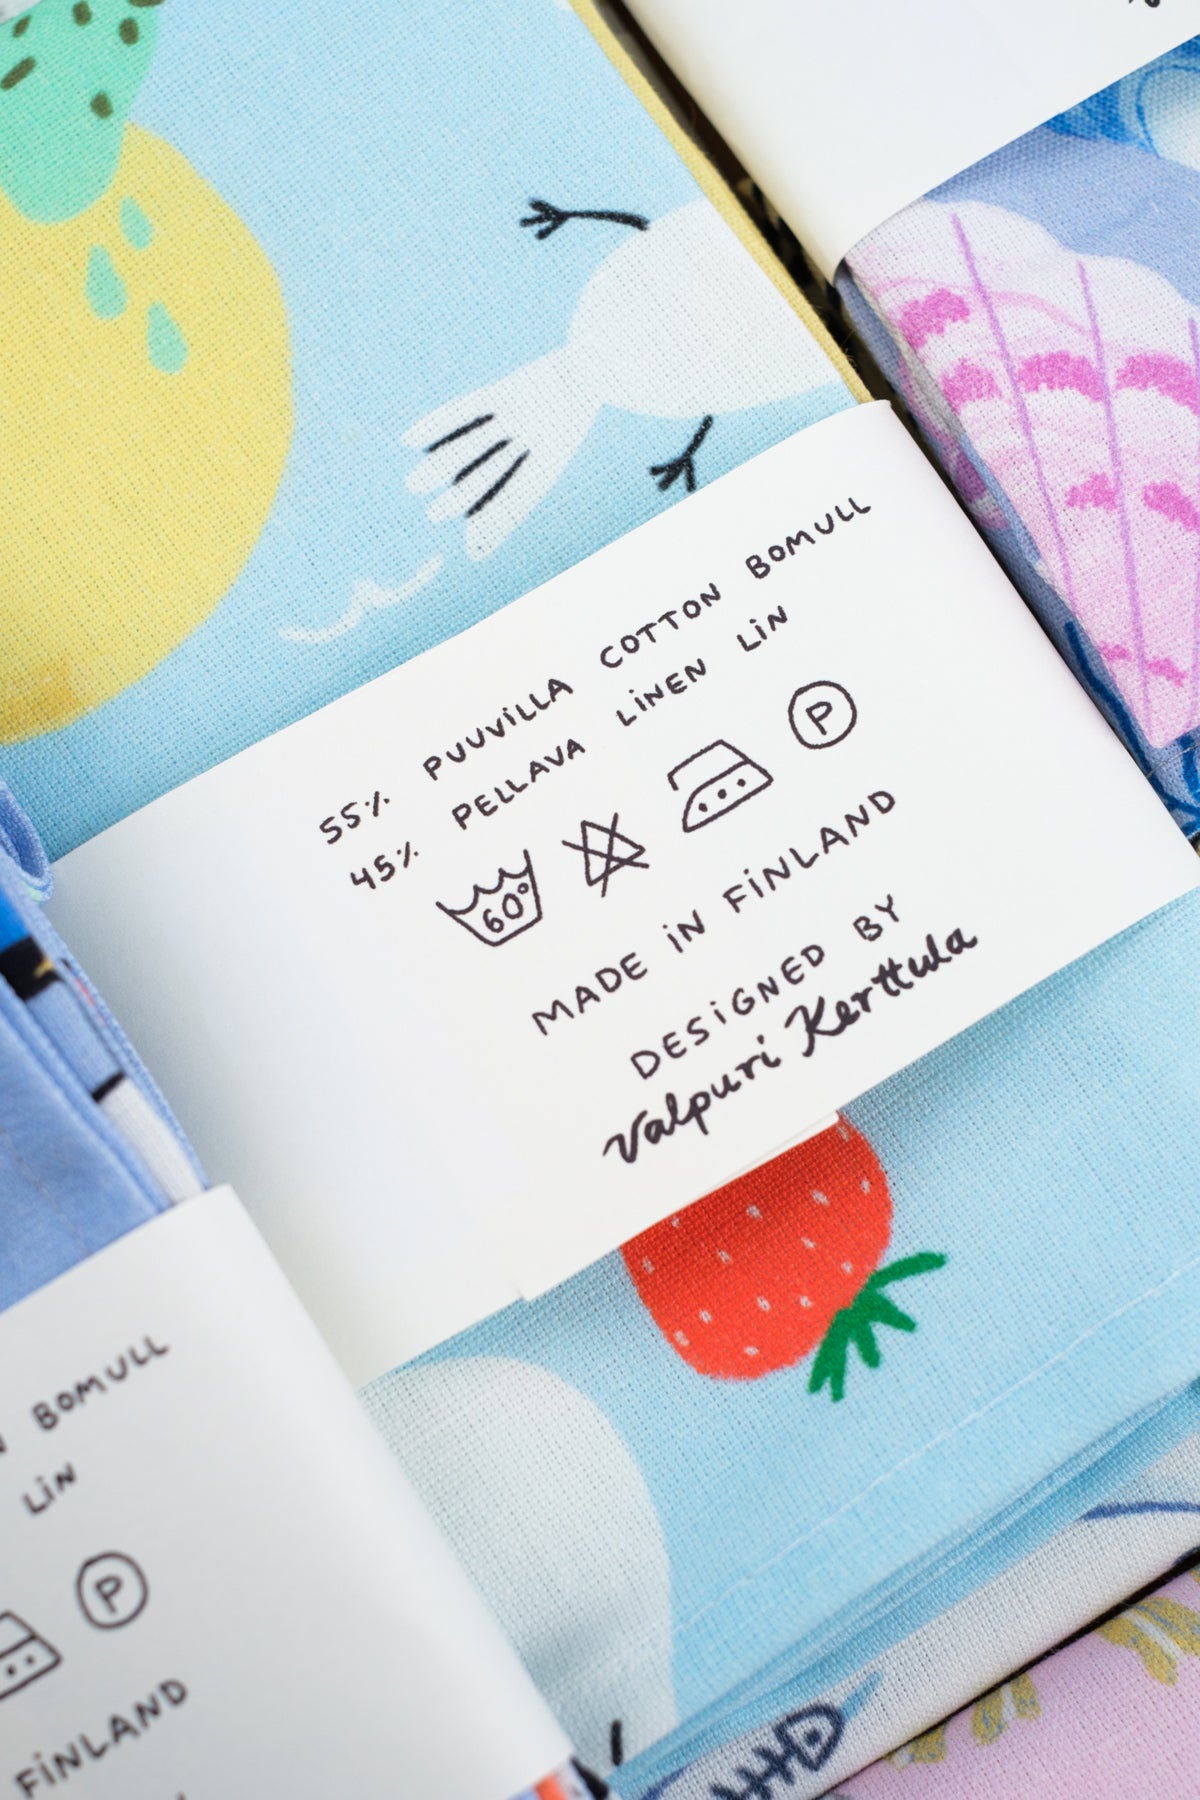 55% PUUVILLA COTTON BOMULL
45% PELLAVA LINEN LIN
60°
P
MADE IN FINLAND
DESIGNED BY
Valpuri Kerttula
BOMULL
LIN
P
FINLAND